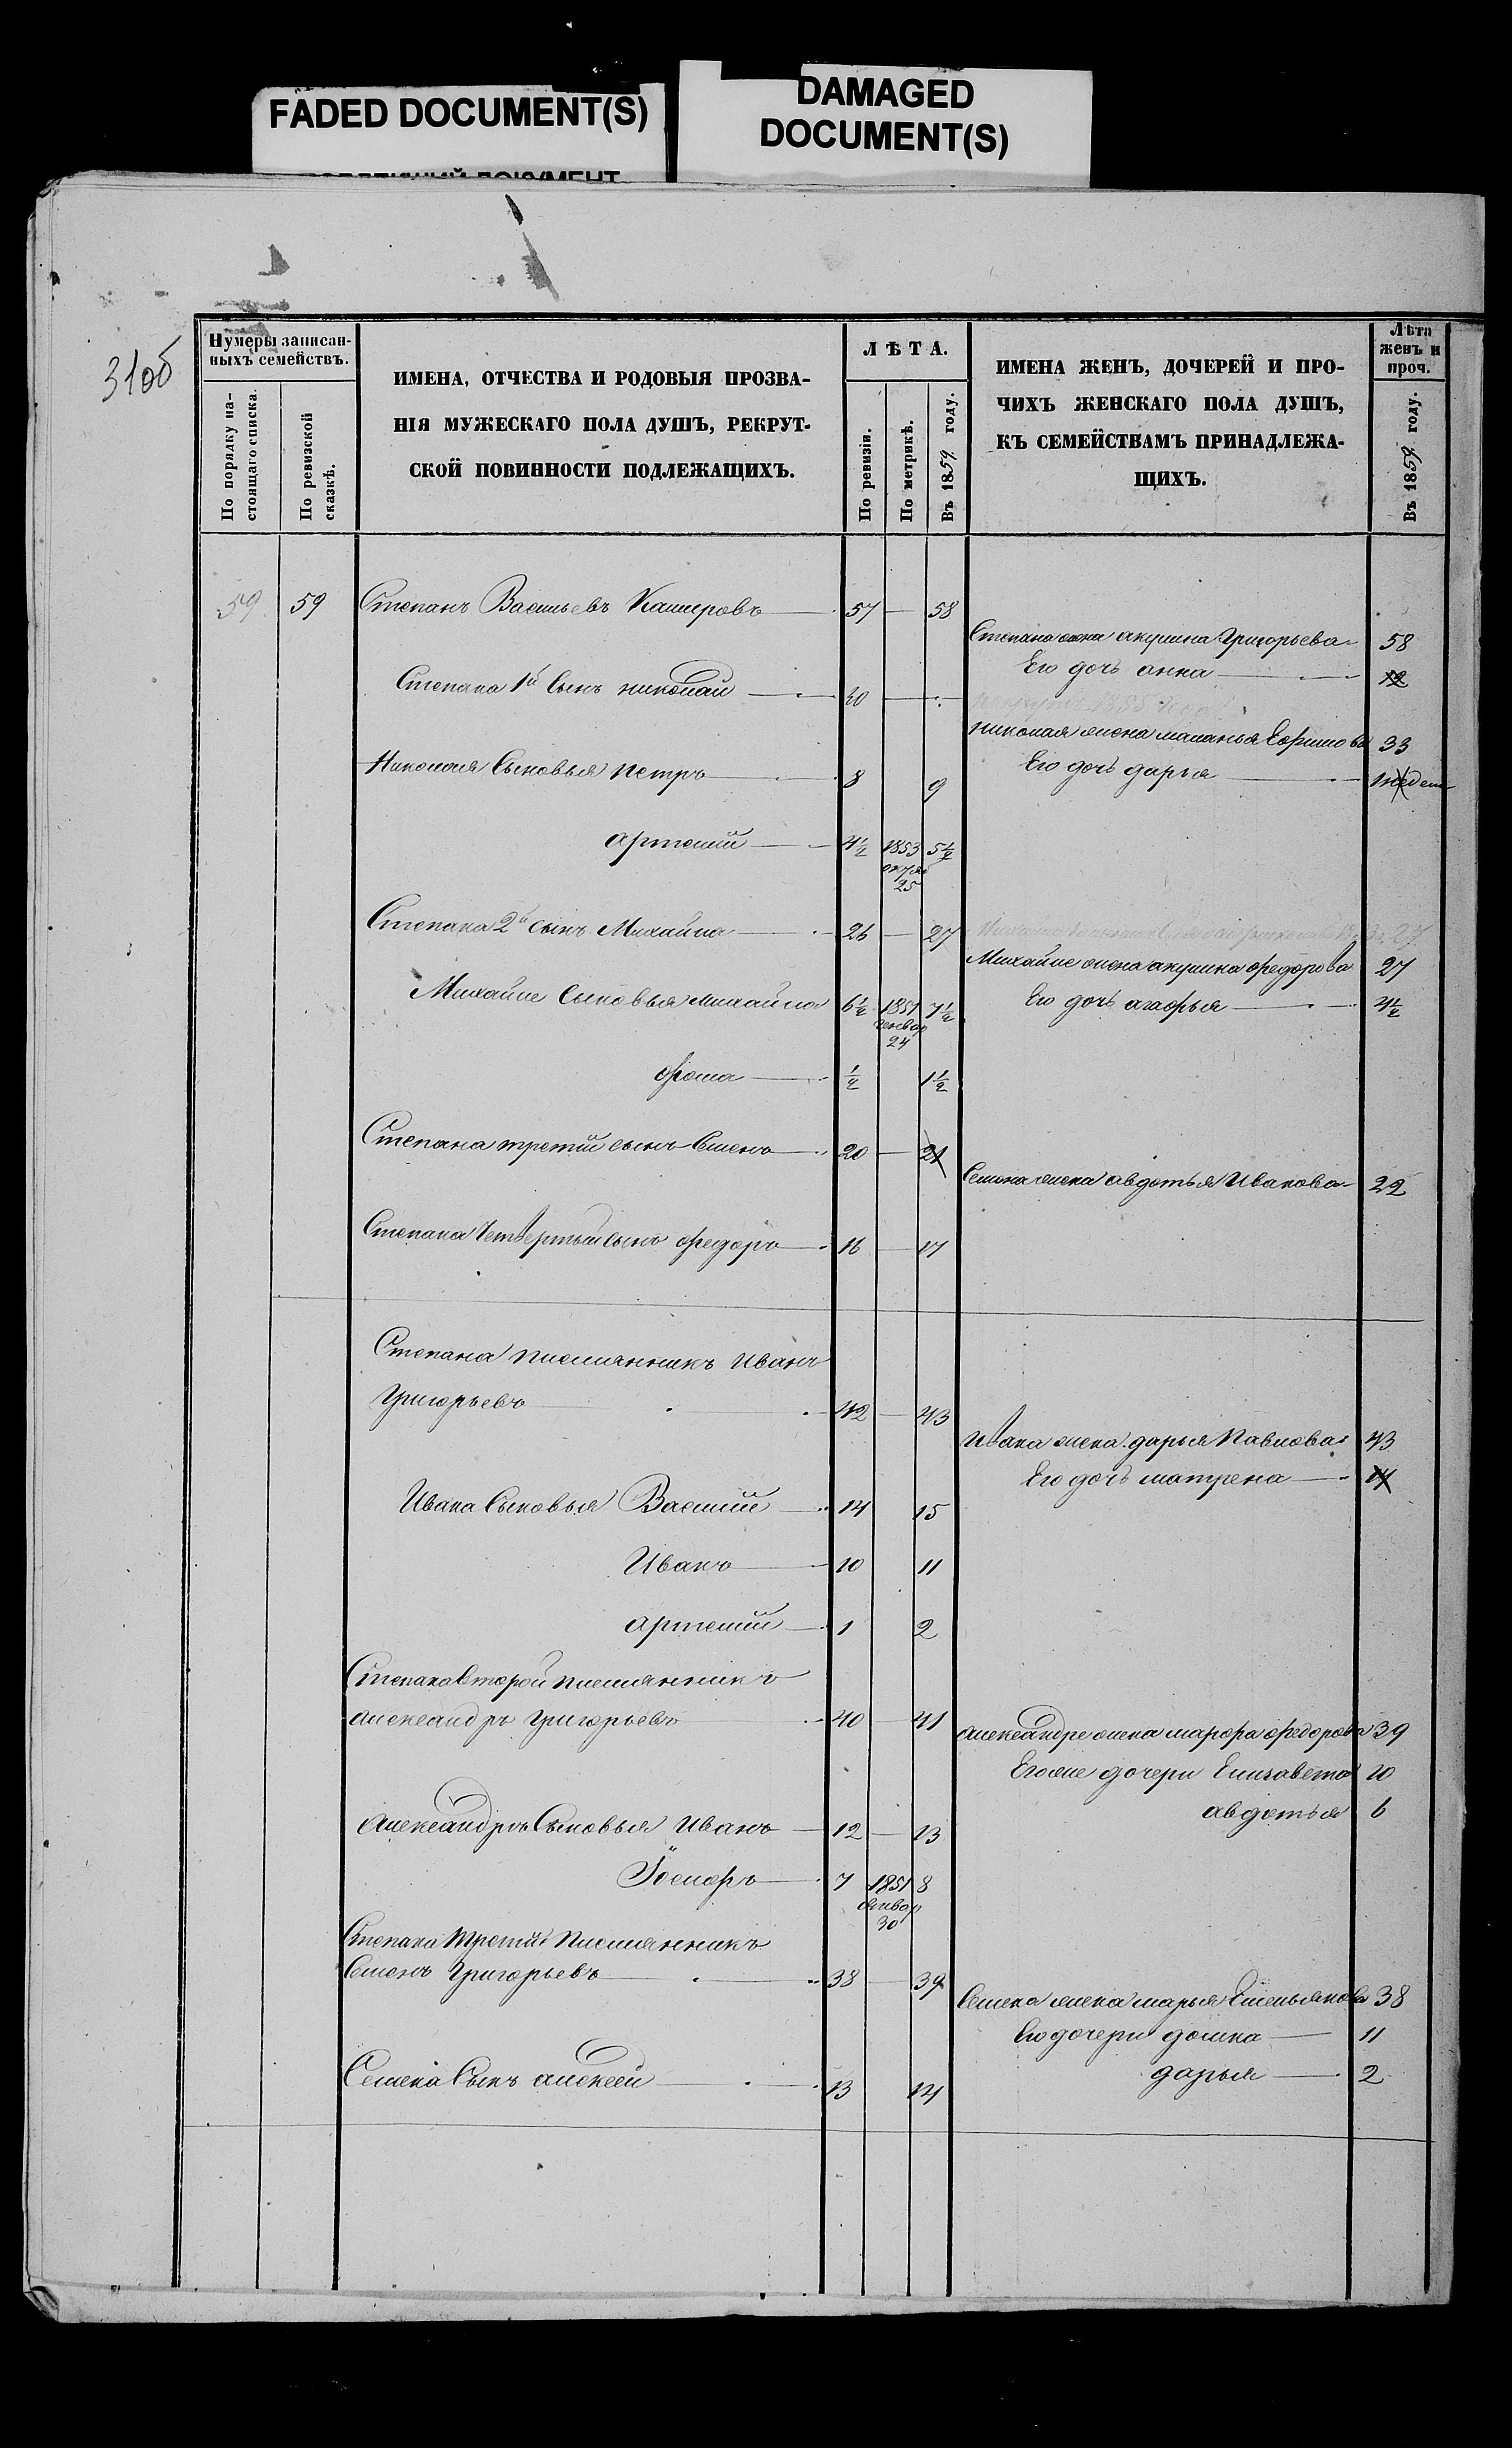 FADED DOCUMENT(S)
DAMAGED
DOCUMENT(S)
31об
Нумеры записан-
ныхъ семействъ.
По порядку на-
стоящаго списка.
По ревизской
сказкѣ.
ИМЕНА, ОТЧЕСТВА И РОДОВЫЯ ПРОЗВА-
НІЯ МУЖЕСКАГО ПОЛА ДУШЪ, РЕКРУТ-
СКОЙ ПОВИННОСТИ ПОДЛЕЖАЩИХЪ.
ЛѢТА.
По ревизіи.
По метрикѣ.
Въ 1859 году.
ИМЕНА ЖЕНЪ, ДОЧЕРЕЙ И ПРО-
ЧИХЪ ЖЕНСКАГО ПОЛА ДУШЪ,
КЪ СЕМЕЙСТВАМЪ ПРИНАДЛЕЖА-
ЩИХЪ.
Лѣта
женъ и
проч.
Въ 1859 году.
59 59 Степанъ Васильевъ Кашировъ 57 — 58
Степана жена акулина Григорьева 58
Его дочь анна 12
Степана 1й Сынъ николай 30 —
николая жена маланья Ефимова 33
Николая Сыновья петръ 8 9
Его дочь дарья
артемий 4½ 1853 5½
октяб
25
Степана 2й сынъ Михайла 26 — 27
Михайле жена акулина федорова 27
Михайле Сыновья михайла 6½ 1851 7½
генвар
24
Его дочь агафья 4½
фома ½ 1½
Степана третий сынъ Семенъ 20 — 21
Семена жена авдотья Иванова 22
Степана Четвертый сынъ федоръ 16 — 17
Степана племянникъ Иванъ
Григорьевъ 42 — 43
Ивана жена дарья Павлова 43
Его дочь матрена 14
Ивана Сыновья Василий 14 15
Иванъ 10 11
артемий 1 2
Степана второй племянникъ
александръ Григорьевъ 40 — 41
александре жена марфа федорова 39
Его же дочери Елизавета 10
авдотья 6
александръ Сыновья Иванъ 12 — 13
7 1851 8
генвар
30
Степана Третий Племянникъ
Семенъ Григорьевъ 38 — 39
Семена жена марья Емельянова 38
Его дочери домна 11
дарья 2
Семена Сынъ алексей 13 14